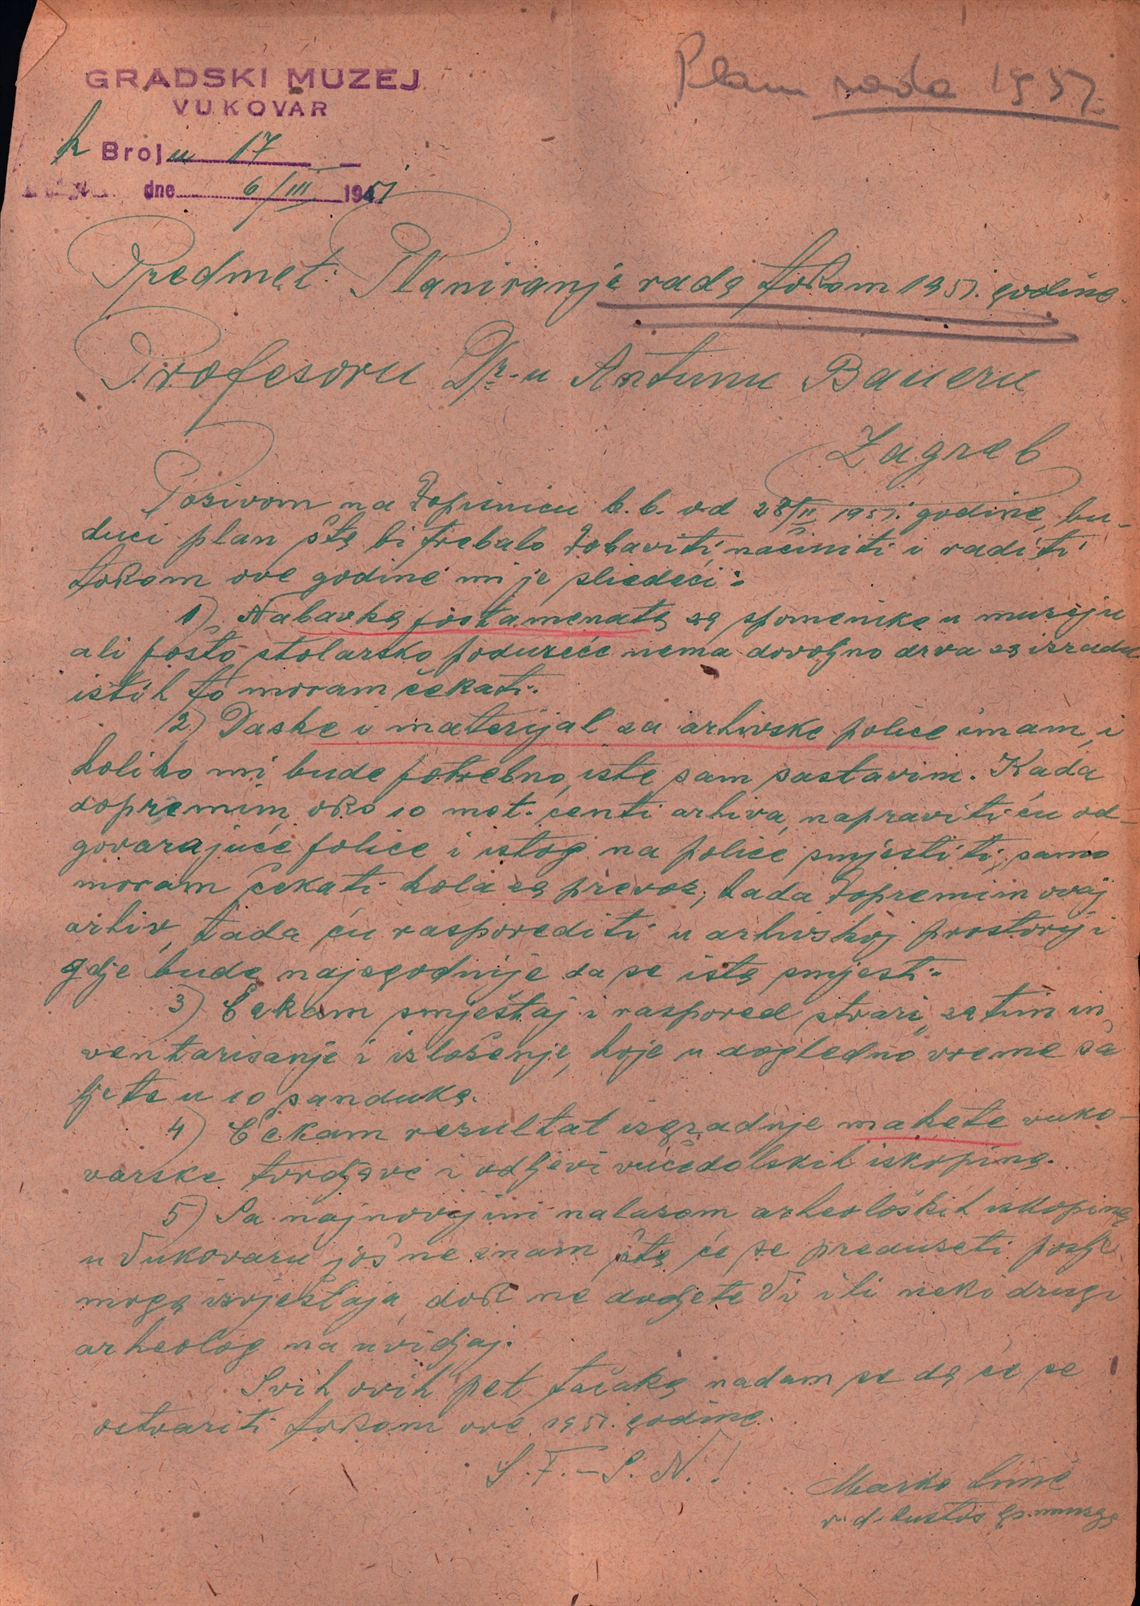 GRADSKI MUZEJ
VUKOVAR
Plan rada 1951.
Broj u 17
dne 6/III 1951
Predmet: Planiranje rada tokom 1951. godine.
Profesoru Dr-u Antunu Baueru
Zagreb
Pozivom na dopisnicu b.b. od 28/II 1951. godine, bu-
dući plan šta bi trebalo dobaviti, načiniti i raditi
tokom ove godine mi je sliedeći:
1) Nabavka postamenata za spomenike u muzeju
ali pošto stolarsko poduzeće nema dovoljno drva za izradu
istih to moram čekati.
2) Daske i materijal za arhivske police imam, i
koliko mi bude potrebno, iste sam sastavim. Kada
dopremim oko 10 met. centi arhiva, napraviti ću od-
govarajuće police i istog na police smjestiti, samo
moram čekati kola za prevoz, kada dopremim ovaj
arhiv, tada ću rasporediti u arhivskoj prostoriji
gdje bude najzgodnije da se ista smjesti.
3) Čekam smještaj i raspored stvari, zatim in
ventarisanje i izloženje, koje u dogledno vreme ša
ljete u 10 sanduka.
4) Čekam rezultat izgradnje makete vuko-
varske tvrdjave i odljevi vučedolskih iskopina.
5) Sa najnovijim nalazom arheoloških iskopina
u Vukovaru još ne znam šta će se preduzeti poslje
moga izvještaja, dok ne dodjete Vi ili neki drugi
arheolog na uvidjaj.
Svih ovih pet tačaka nadam se da će se
ostvariti tokom ove 1951. godine.
S.F. – S.N.!
Marko
v.d. kustos gr. muzeja